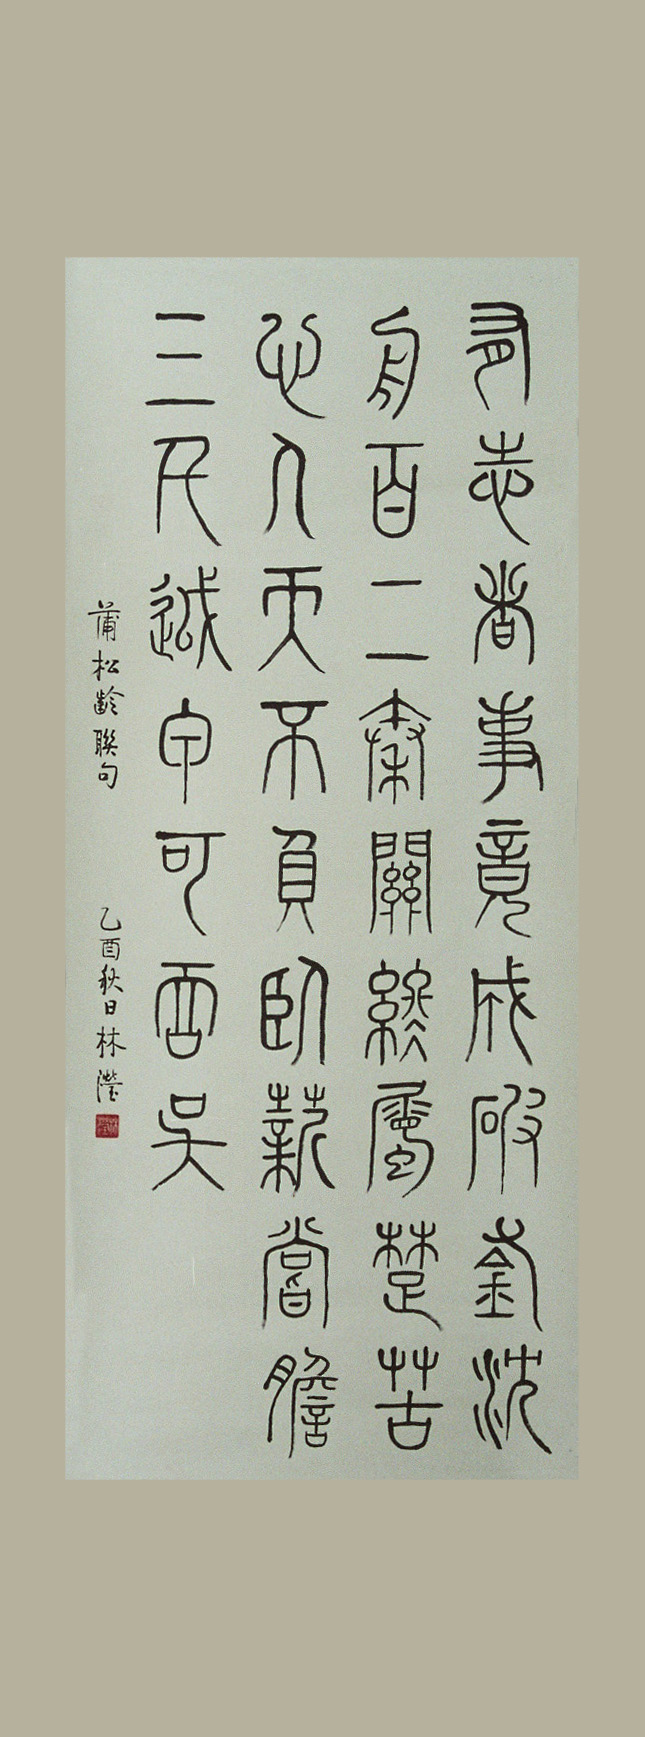 有志者事竟成破釜沈
舟百二秦關終屬楚苦
心人天不負臥薪嘗膽
三千越甲可吞吳
蒲松齡聯句 乙酉秋日林瀅